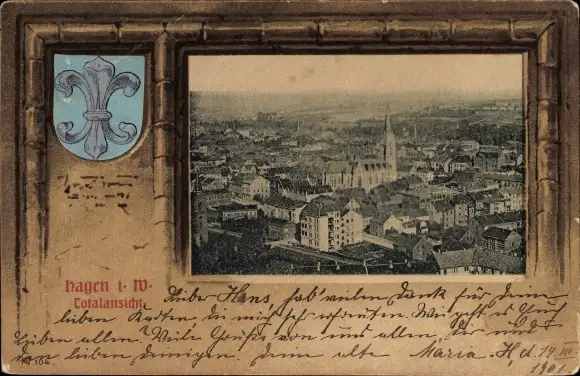 Hagen i. W.
Totalansicht.
Lieber Hans, hab' vielen Dank für Deine
lieben Karten die mich sehr erfreuten. Wie geht es Euch
Lieben allen? Viele Grüße von uns allen, Dir und
den lieben Deinigen. Deine alte Maria H, d. 14.
1901